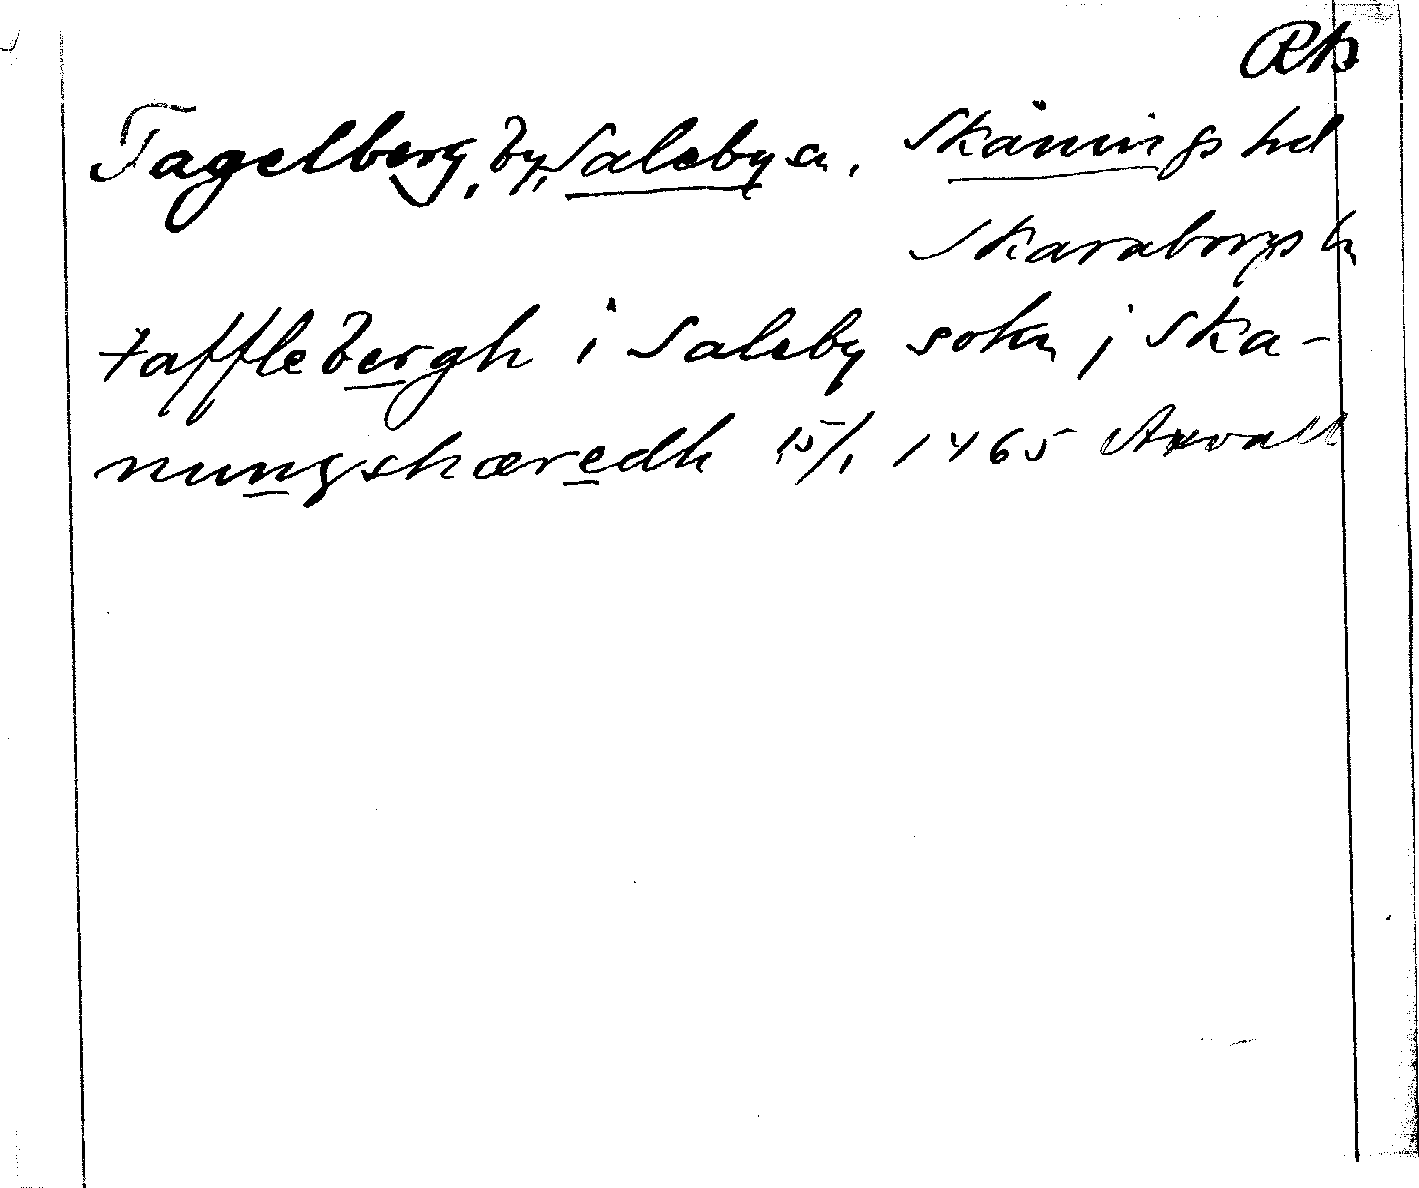 Rb
Tagelberg, by, Saleby sn, Skånings hd
Skaraborgs ln
tafflebergh i Saleby sokn j Ska-
nungshæredh 15/1 1465 Axvall